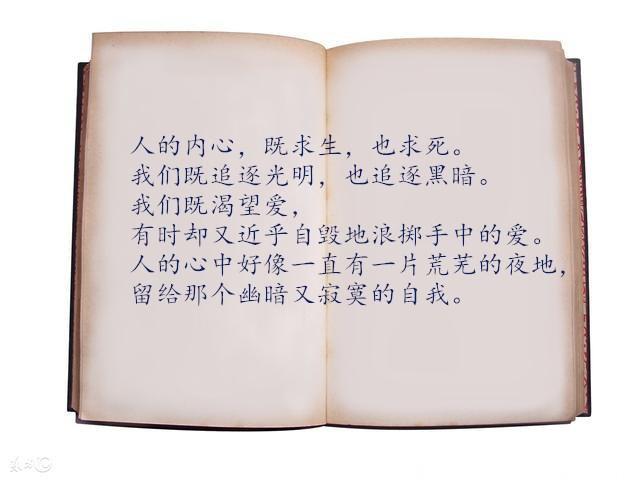 人的内心，既求生，也求死。
我们既追逐光明，也追逐黑暗。
我们既渴望爱，
有时却又近乎自毁地浪掷手中的爱。
人的心中好像一直有一片荒芜的夜地，
留给那个幽暗又寂寞的自我。